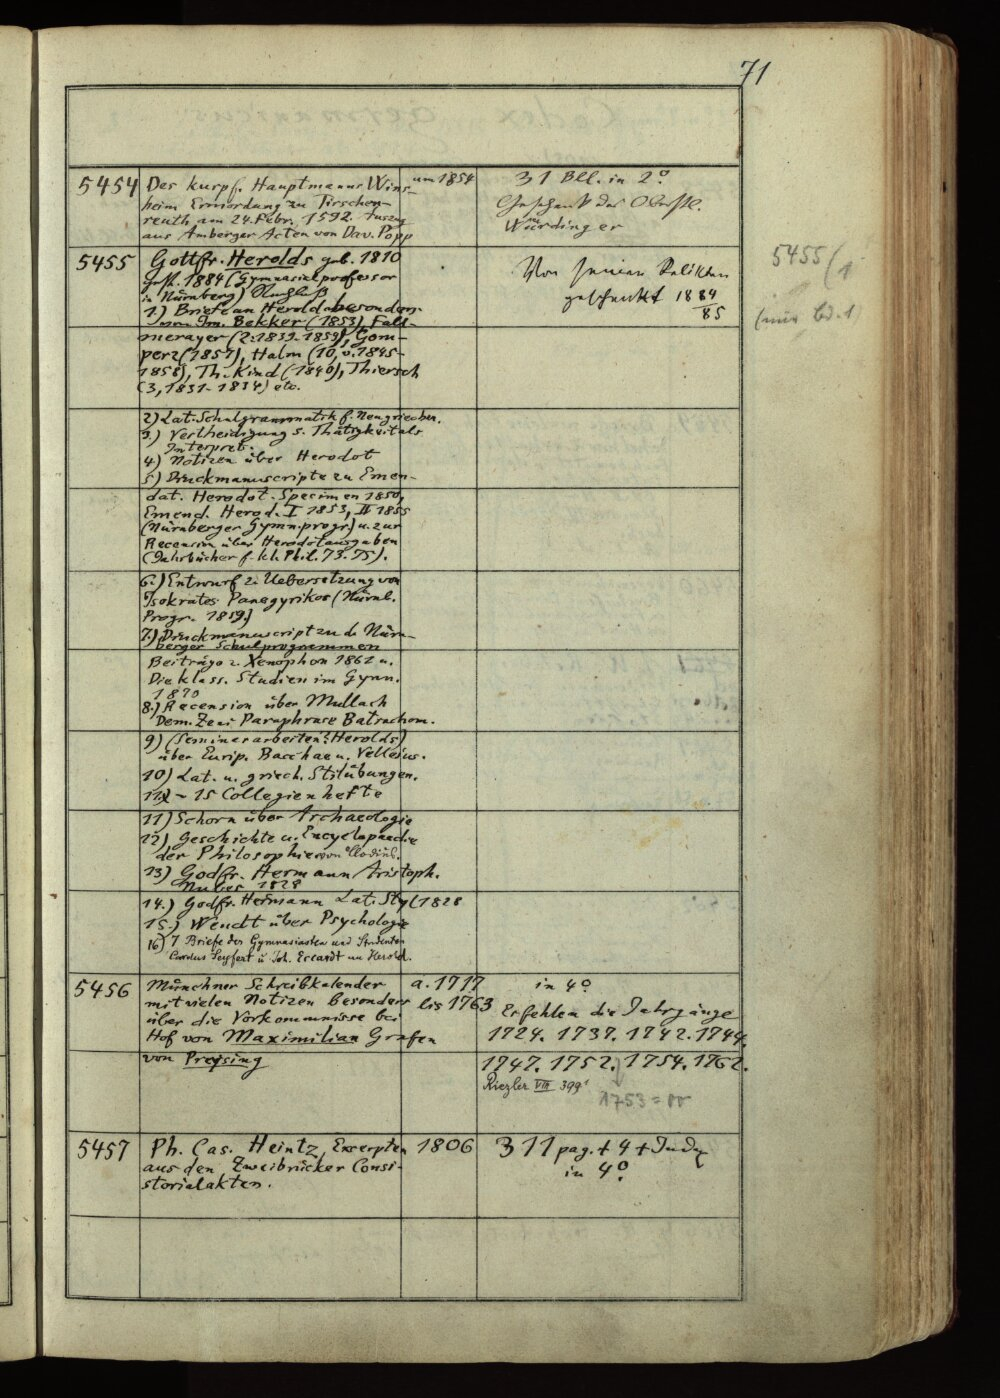 71
5454 Des kurpf. Hauptmanns Wins- um 1854 31 Bll. in 2°.
heim Ermordung zu Tirschen- Geschenk des Oberstl.
reuth am 24. Febr. 1592. Auszug Würdinger
aus Amberger Acten von Dav. Popp
5455 Gottfr. Herolds geb. 1810 Von seinen Relikten
gest. 1884 (Gymnasialprofessor geschenkt 1884/85
in Nürnberg) Nachlaß
5455 (1
(nur Bd. 1)
1.) Briefe an Herold besonders
von Im. Bekker (1853), Fall-
merayer (2: 1839-1859), Gom-
perz (1857), Halm (10, v. 1845-
1858), Th. Kind (1840), Thiersch
(3, 1831-1834) etc.
2) Lat. Schulgrammatik f. Neugriechen.
3.) Vertheidigung s. Thätigkeit als
Interpret.
4) Notizen über Herodot
5) Druckmanuscripte zu Emen-
dat. Herodot. Specimen 1850,
Emend. Herod. I 1853, II 1855
(Nürnberger Gymn.progr.) u. zur
Recension über Herodotausgaben
(Jahrbücher f. kl. Phil. 73. 75).
6.) Entwurf z. Uebersetzung von
Isokrates Panegyrikos (Nürnb.
Progr. 1859)
7.) Druckmanuscript zu d. Nürn-
berger Schulprogrammen
Beiträge z. Xenophon 1862 u.
Die klass. Studien im Gymn.
1870
8.) Recension über Mullach
Dem. Zeni Paraphrase Batrachom.
9) (Seminararbeiten? Herolds)
über Eurip. Bacchae u. Vellejus.
10) Lat. u. griech. Stilübungen.
11) - 15 Collegienhefte
11) Schorn über Archaeologie
12) Geschichte u. Encyclopaedie
der Philosophie von
13) Godfr. Hermann Aristoph.
Nubes 1828
14.) Godfr. Hermann Lat. Styl 1828
15.) Wendt über Psychologie
16) 7 Briefe der Gymnasiasten und Studenten
Carolus Seyfert u. Joh. Erhardt an Herold.
5456 Münchner Schreibkalender a. 1717 in 4°.
mit vielen Notizen besonders bis 1763 Es fehlen die Jahrgänge
über die Vorkommnisse bei 1724. 1737. 1742. 1744.
Hof von Maximilian Grafen
von Preysing 1747. 1752. 1754. 1762.
Riezler VIII 399
1753 =
5457 Ph. Cas. Heintz, Excerpten 1806 311 pag. + 4 + Index
aus den Zweibrücker Consi- in 4°.
storialakten.